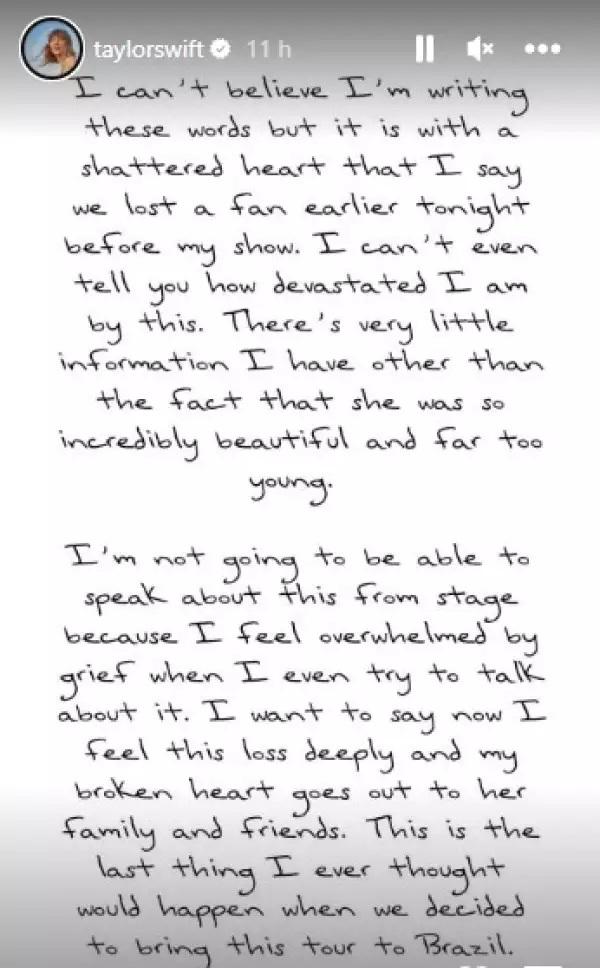 taylorswift 11 h
I can't believe I'm writing
these words but it is with a
shattered heart that I say
we lost a fan earlier tonight
before my show. I can't even
tell you how devastated I am
by this. There's very little
information I have other than
the fact that she was so
incredibly beautiful and far too
young.
I'm not going to be able to
speak about this from stage
because I feel overwhelmed by
grief when I even try to talk
about it. I want to say now I
feel this loss deeply and my
broken heart goes out to her
family and friends. This is the
last thing I ever thought
would happen when we decided
to bring this tour to Brazil.